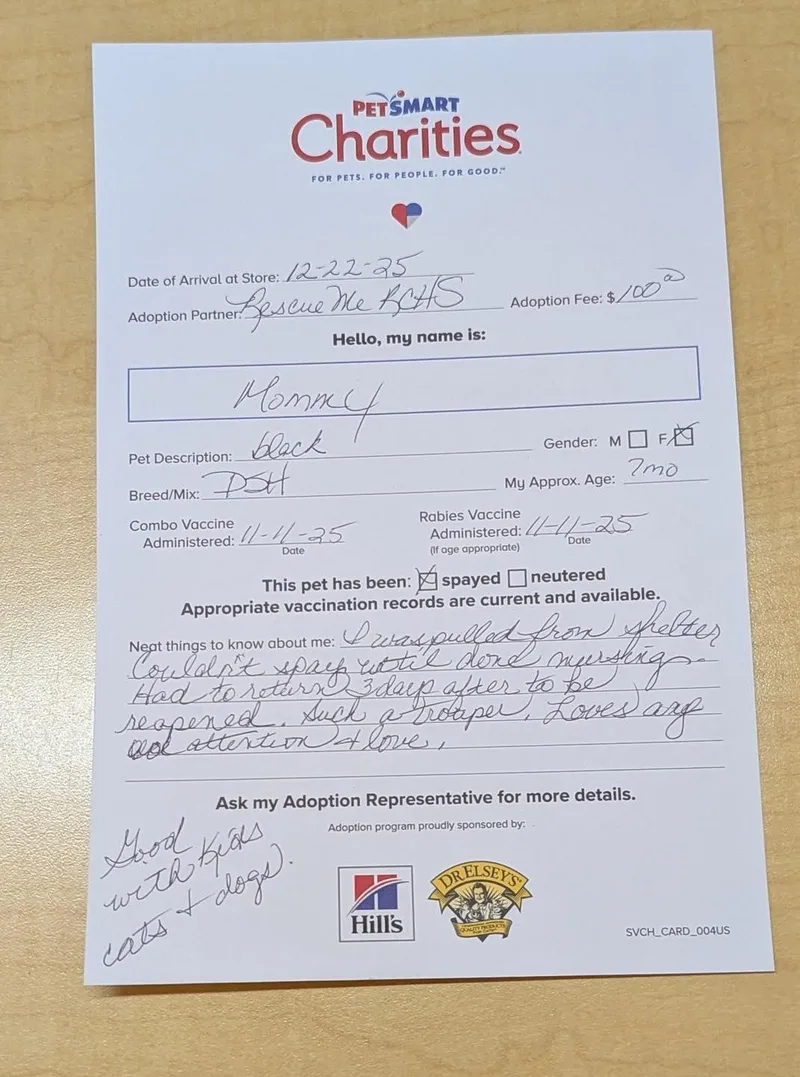 PETSMART
Charities
FOR PETS. FOR PEOPLE. FOR GOOD.™
Date of Arrival at Store: 12-22-25
Adoption Partner: Rescue Me RCHS Adoption Fee: $100
Hello, my name is:
Mommy
Pet Description: black Gender: M F
Breed/Mix: DSH My Approx. Age: 7mo
Combo Vaccine Administered: 11-11-25 Date
Rabies Vaccine Administered: 11-11-25 (If age appropriate) Date
This pet has been: spayed neutered
Appropriate vaccination records are current and available.
Neat things to know about me: I was pulled from shelter
Couldn't spay until done nursing.
Had to return 3 days after to be
reopened. Such a trooper. Loves any
attention & love.
Ask my Adoption Representative for more details.
Adoption program proudly sponsored by:
Good
with kids
cats + dogs.
Hill's
DR. ELSEY'S
QUALITY PRODUCTS
SVCH_CARD_004US